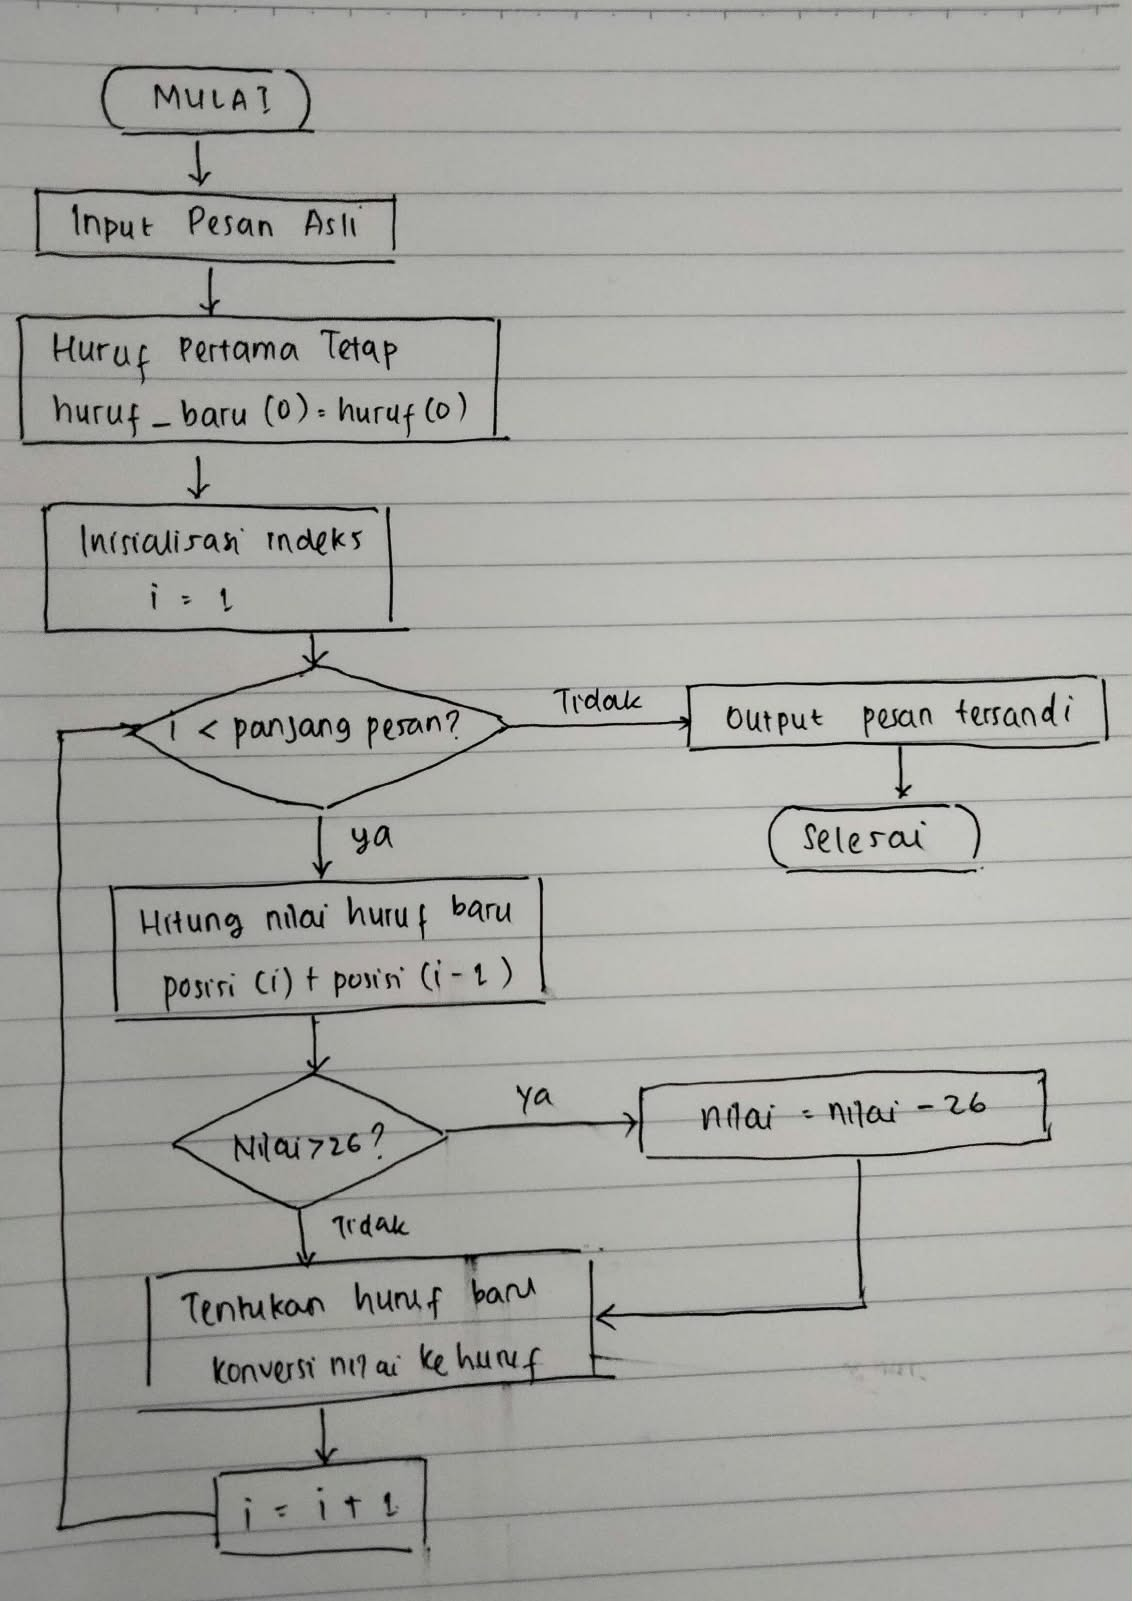 MULAI
Input Pesan Asli
Huruf Pertama Tetap
huruf_baru (0) = huruf (0)
Inisialisasi indeks
i = 1
i < panjang pesan?
Tidak
Output pesan tersandi
Selesai
ya
Hitung nilai huruf baru
posisi (i) + posisi (i-1)
Nilai > 26?
ya
nilai = nilai - 26
Tidak
Tentukan huruf baru
konversi nilai ke huruf
i = i + 1